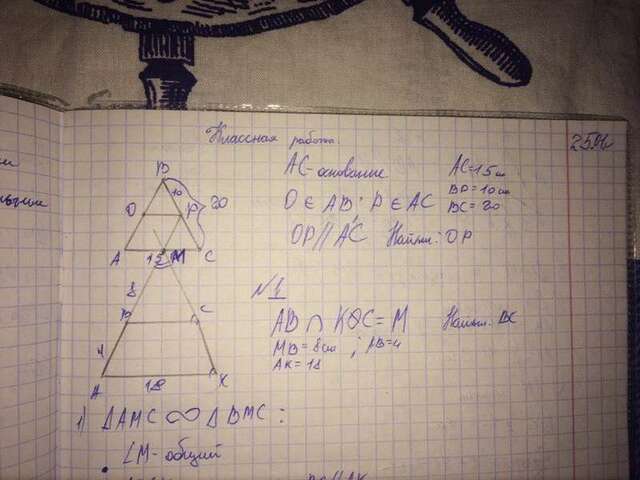 Классная работа.
25.02
AC - основание
AC = 15 см
O ∈ AB; P ∈ AC
BP = 10 см
BC = 20
OP || AC Найти: OP
B
10
20
O
P
A
15
M
C
8
B
C
4
A
18
K
№1
AB ∩ KC = M Найти: BC
MB = 8 см; AB = 4
AK = 18
1) ΔAMC ∞ ΔBMC:
∠M - общий